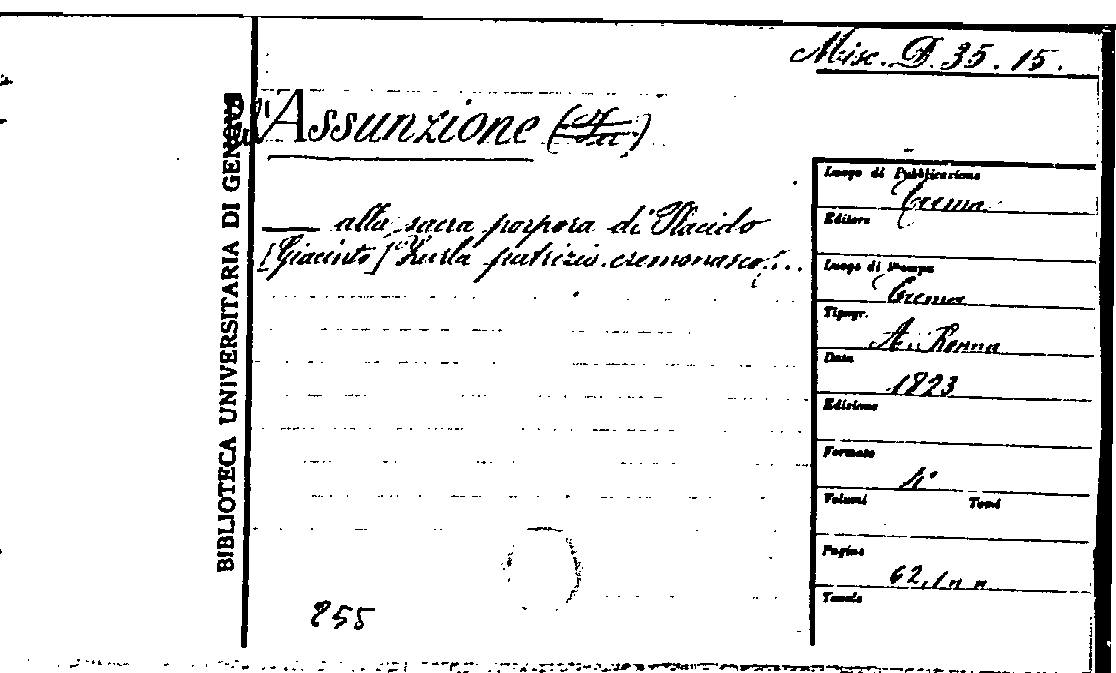 Misc. B. 35. 15.
BIBLIOTECA UNIVERSITARIA DI GENOVA
all'Assunzione (
— alla sacra porpora di Placido
[Giacinto] Zurla patrizio cremonasco...
Luogo di Pubblicazione
Crema
Editore
Luogo di Stampa
Crema
Tipogr.
A. Ronna
Data
1823
Edizione
Formato
4°
Volumi Tomi
Pagine
62, 1 n n
Tavole
255